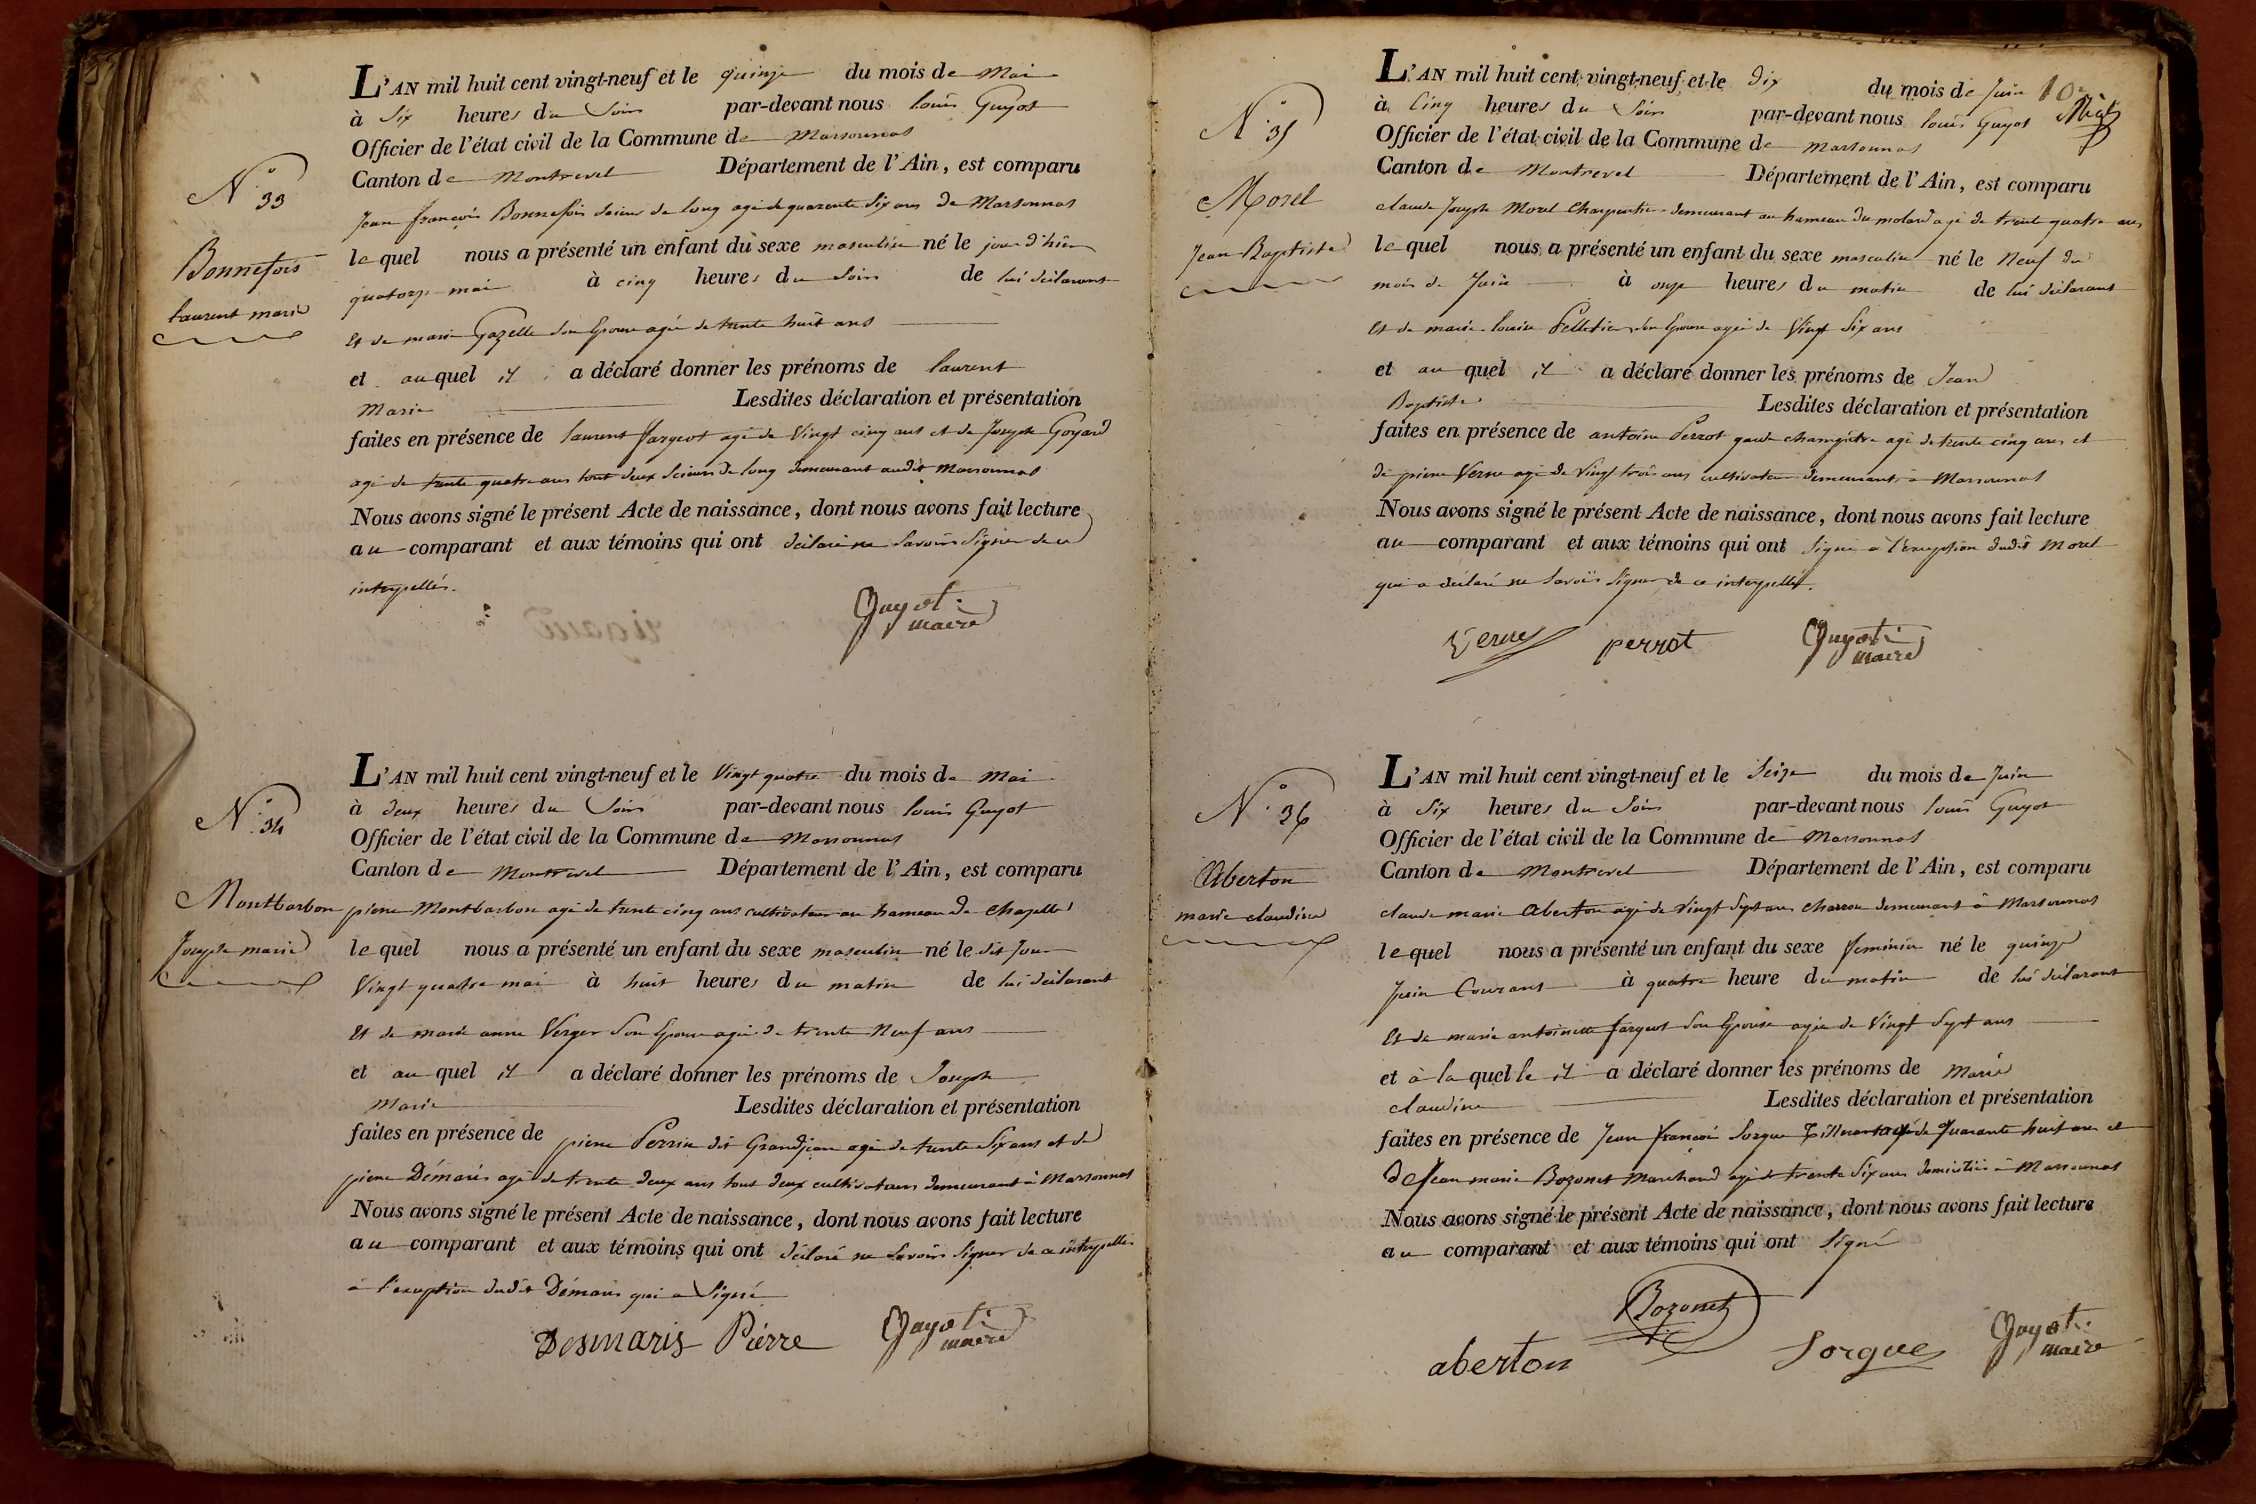 N.° 33
Bonnefois
laurent marie
L'AN mil huit cent vingt-neuf et le quinze du mois de Mai
à Six heures du Soir par-devant nous louis Guyot
Officier de l'état civil de la Commune de Marsonnas
Canton de Montrevel Département de l'Ain, est comparu
Jean françois Bonnefois Scieur de long agé de quarente Six ans de Marsonnas
le quel nous a présenté un enfant du sexe masculin né le jour d'hier
quatorze mai à cinq heures du Soir de lui déclarant
Et de marie Gazelle Son Epouse agée de trente huit ans
et au quel il a déclaré donner les prénoms de laurent
Marie Lesdites déclaration et présentation
faites en présence de laurent fargeot agé de Vingt cinq ans et de Joseph Goyard
agé de trente quatre ans tout deux Scieurs de long demeurant audit Marsonnas
Nous avons signé le présent Acte de naissance, dont nous avons fait lecture
au comparant et aux témoins qui ont déclaré ne Savoir Signer de ce
interpellés.
Guyot
maire
N.° 34
Montbarbon
Joseph marie
L'AN mil huit cent vingt-neuf et le Vingt quatre du mois de Mai
à deux heures du Soir par-devant nous louis Guyot
Officier de l'état civil de la Commune de Marsonnas
Canton de Montrevel Département de l'Ain, est comparu
pierre Montbarbon agé de trente cinq ans cultivateur au hameau de Chapelle
le quel nous a présenté un enfant du sexe masculin né le dit Jour
Vingt quatre mai à huit heures du matin de lui déclarant
Et de marie anne Verger Son Epouse agée de trente Neuf ans
et au quel il a déclaré donner les prénoms de Joseph
Marie Lesdites déclaration et présentation
faites en présence de pierre Perrin dit Grandjean agé de trente Six ans et de
pierre Démaris agé de trente deux ans tous deux cultivateurs demeurant à Marsonnas
Nous avons signé le présent Acte de naissance, dont nous avons fait lecture
au comparant et aux témoins qui ont déclaré ne Savoir Signer de ce interpellés
à l'exception dudit Démaris qui a Signé
Desmaris Pierre Guyot
maire
10
N.° 35
Morel
Jean Baptiste
L'AN mil huit cent vingt-neuf et le Dix du mois de Juin
à Cinq heures du Soir par-devant nous louis Guyot
Officier de l'état civil de la Commune de Marsonnas
Canton de Montrevel Département de l'Ain, est comparu
claude Joseph Morel Charpentier demeurant au hameau du molard agé de trente quatre ans
le quel nous a présenté un enfant du sexe masculin né le Neuf du
mois de Juin à onze heures du matin de lui déclarant
Et de marie louise Pelletier Son Epouse agée de Vingt Six ans
et au quel il a déclaré donner les prénoms de Jean
Baptiste Lesdites déclaration et présentation
faites en présence de antoine Perrot garde champêtre agé de trente cinq ans et
de pierre Verne agé de Vingt trois ans cultivateur demeurants à Marsonnas
Nous avons signé le présent Acte de naissance, dont nous avons fait lecture
au comparant et aux témoins qui ont Signé à l'exception dudit Morel
qui a déclaré ne Savoir Signer de ce interpellé.
Verne perrot Guyot
maire
N.° 36
Aberton
marie claudine
L'AN mil huit cent vingt-neuf et le Seize du mois de Juin
à Six heures du Soir par-devant nous louis Guyot
Officier de l'état civil de la Commune de Marsonnas
Canton de Montrevel Département de l'Ain, est comparu
claude marie Aberton agé de Vingt Sept ans Charron demeurant à Marsonnas
le quel nous a présenté un enfant du sexe feminin né le quinze
Juin Courant à quatre heure du matin de lui déclarant
Et de marie antoinette fargeot Son Epouse agée de Vingt Sept ans
et à la quelle il a déclaré donner les prénoms de Marie
claudine Lesdites déclaration et présentation
faites en présence de Jean françois Sorgue agé de Quarante huit ans et
de Jean marie Bozonet Marchand agé de trente Six ans domiciliés à Marsonnas
Nous avons signé le présent Acte de naissance, dont nous avons fait lecture
au comparant et aux témoins qui ont Signé
Bozonet
aberton Sorgue Guyot
maire